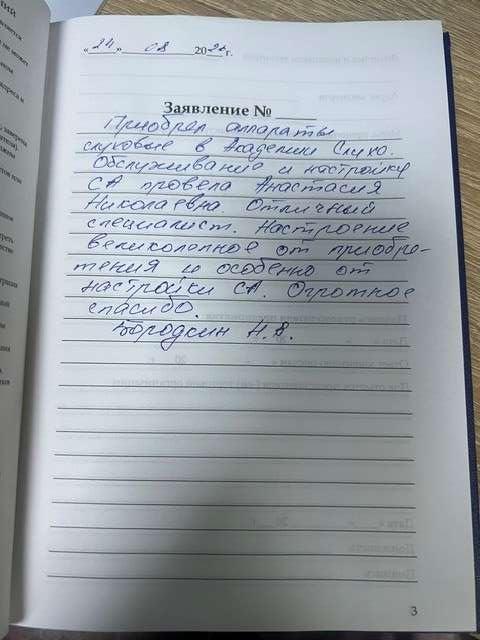 «24» 08 2022 г.
Заявление №
Приобрел аппараты
слуховые в Академии Слуха.
Обслуживание и настройку
СА провела Анастасия
Николаевна. Отличный
специалист. Настроение
великолепное от приобре-
тения и особенно от
настройки СА. Огромное
спасибо.
Бородкин Н.В.
3